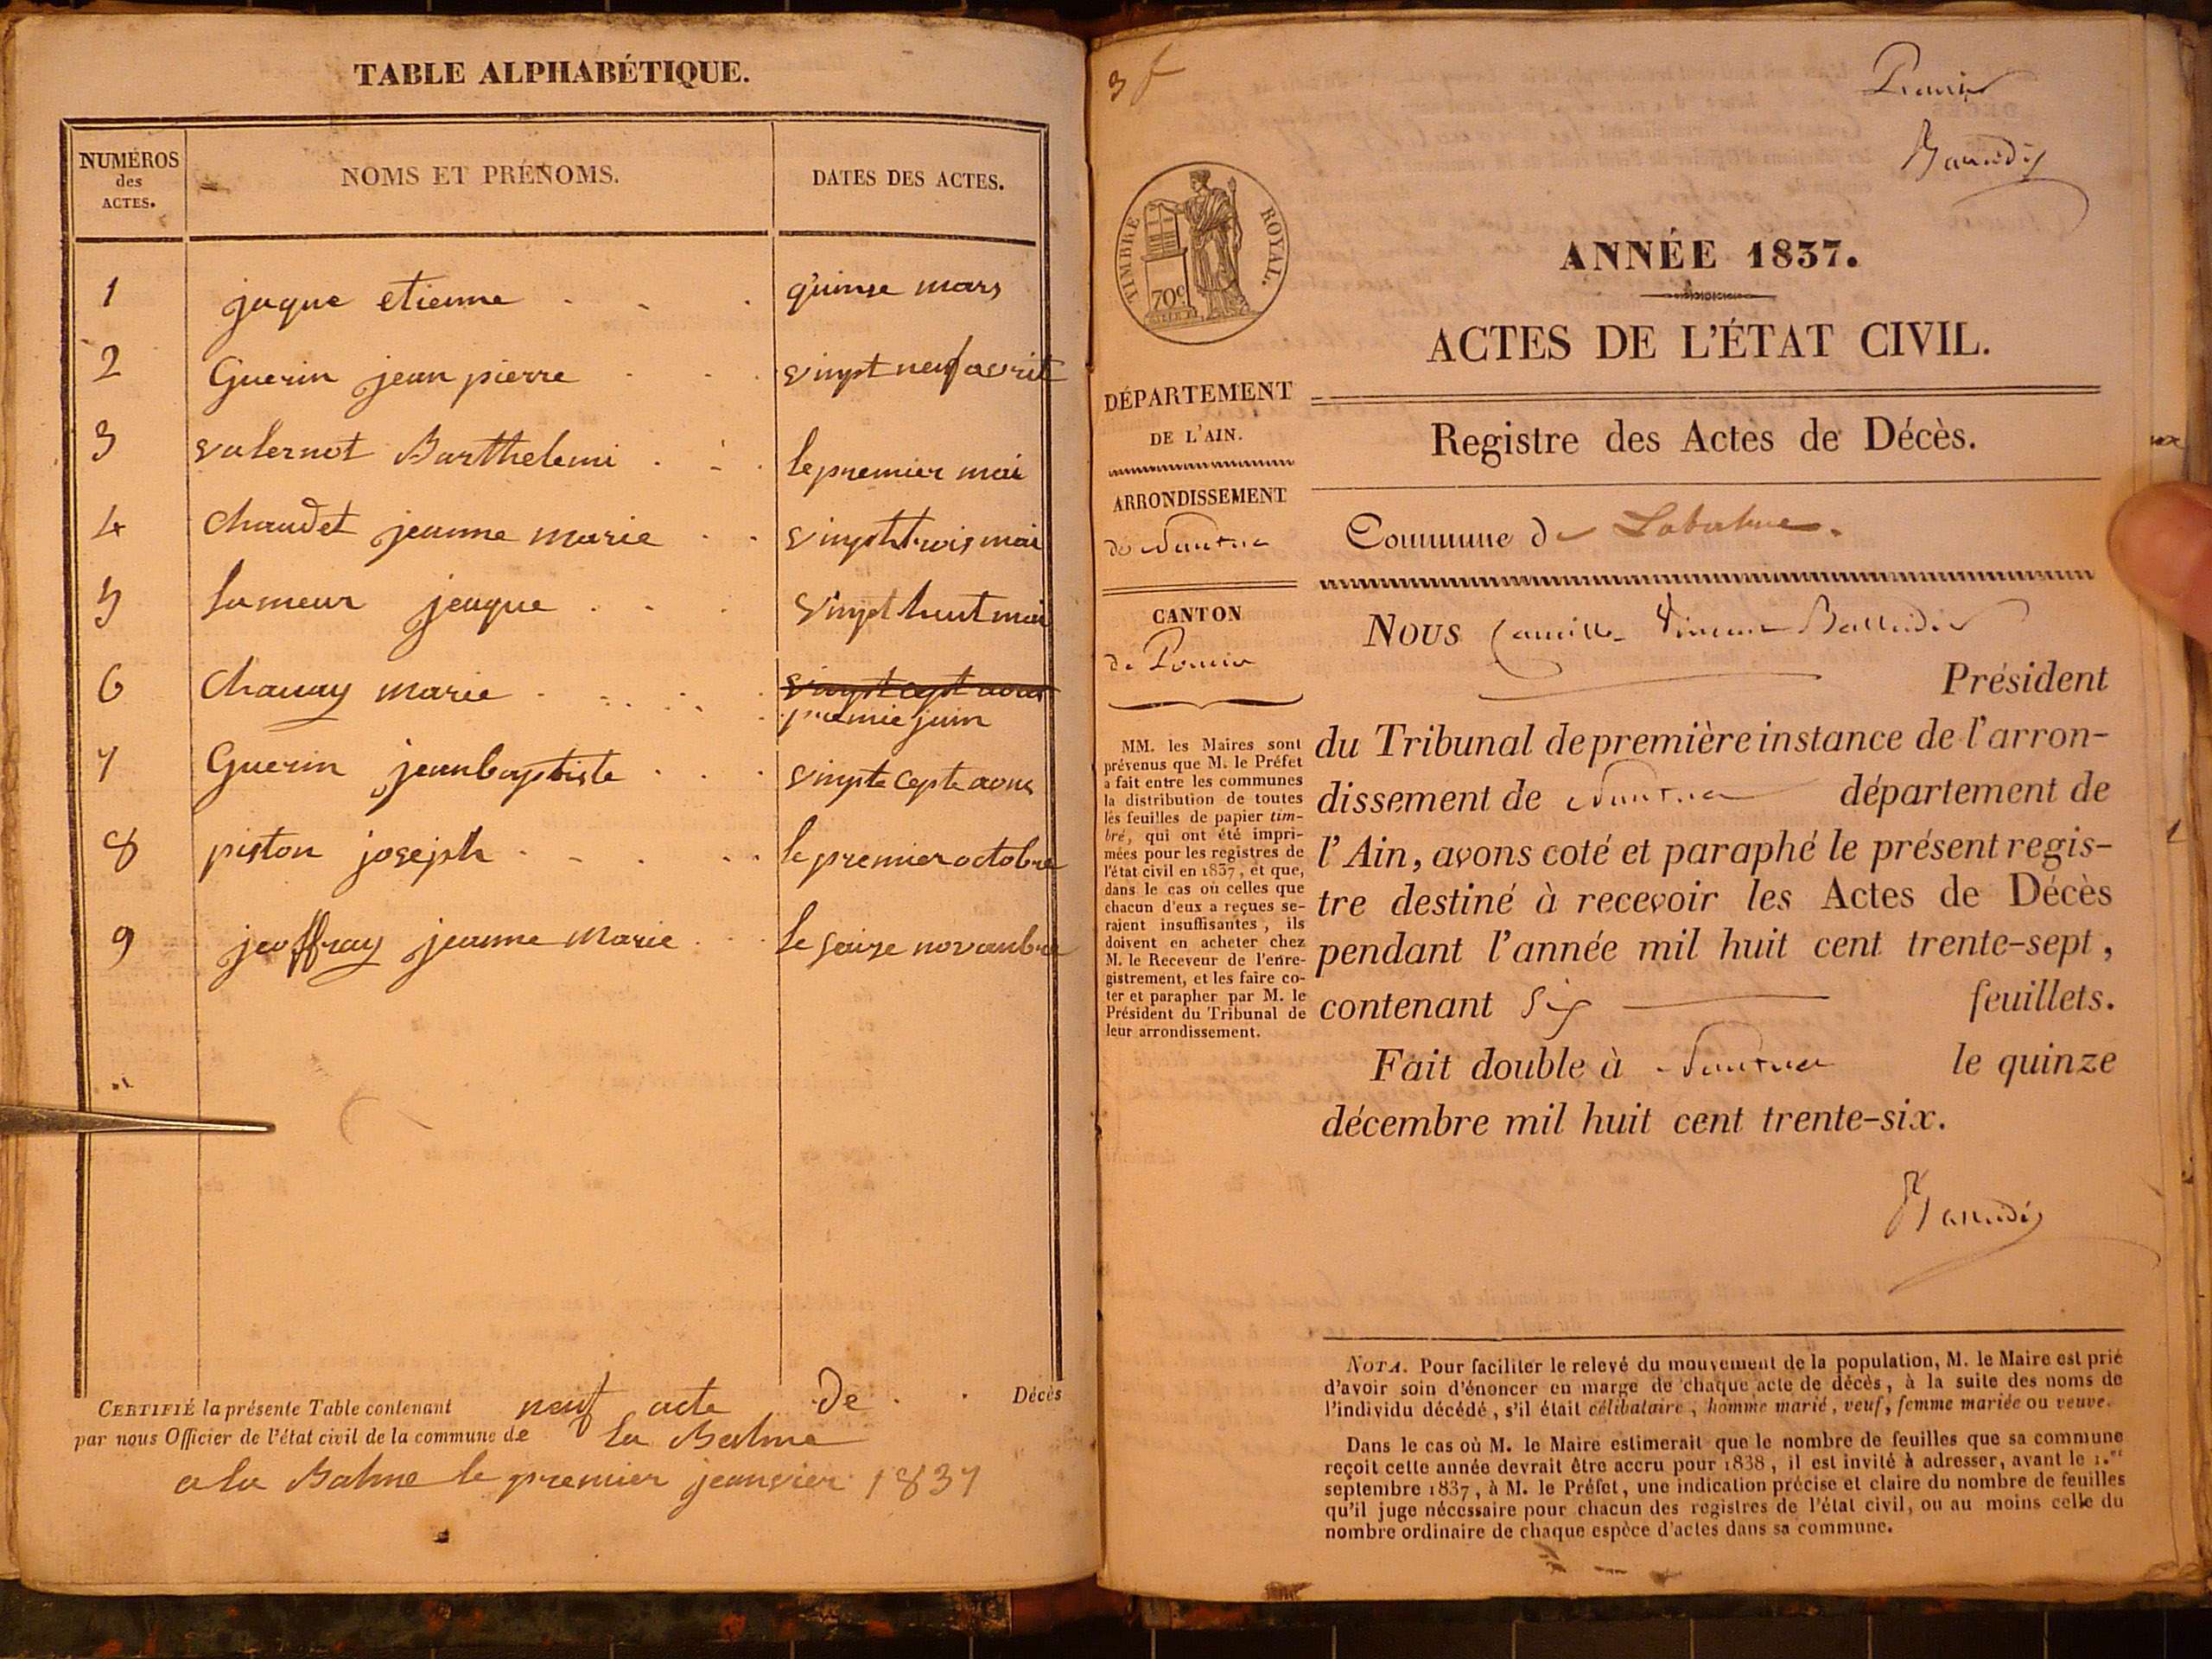 TABLE ALPHABÉTIQUE.
NUMÉROS
des
ACTES.
NOMS ET PRÉNOMS.
DATES DES ACTES.
1 jaque etienne quinse mars
2 Guerin jean pierre vinpt neuf avril
3 valernot Barthelemi le premier mai
4 chaudet jeanne marie vinpt trois mai
5 lameur jeaque vinpt huit mai
6 chanay marie vinpt cept aous
premie juin
7 Guerin jeanbaptiste vinpte cepte aous
8 piston joseph le premier octobre
9 jeoffray jeanne marie le seize novanbre
CERTIFIÉ la présente Table contenant neuf acte de Décès
par nous Officier de l'état civil de la commune de la Balme
a la Balme le premier jeanvier 1837
3 f
TIMBRE ROYAL.
70c
DÉPARTEMENT
DE L'AIN.
ARRONDISSEMENT
de Nantua
CANTON
de Poncin
MM. les Maires sont
prévenus que M. le Préfet
a fait entre les communes
la distribution de toutes
les feuilles de papier tim-
bré, qui ont été impri-
mées pour les registres de
l'état civil en 1837, et que,
dans le cas où celles que
chacun d'eux a reçues se-
raient insuffisantes, ils
doivent en acheter chez
M. le Receveur de l'enre-
gistrement, et les faire co-
ter et parapher par M. le
Président du Tribunal de
leur arrondissement.
Premier
ANNÉE 1837.
ACTES DE L'ÉTAT CIVIL.
Registre des Actes de Décès.
Commune de Labalme.
Nous Camille Vincent
Président
du Tribunal de première instance de l'arron-
dissement de Nantua département de
l'Ain, avons coté et paraphé le présent regis-
tre destiné à recevoir les Actes de Décès
pendant l'année mil huit cent trente-sept,
contenant Six feuillets.
Fait double à Nantua le quinze
décembre mil huit cent trente-six.
NOTA. Pour faciliter le relevé du mouvement de la population, M. le Maire est prié
d'avoir soin d'énoncer en marge de chaque acte de décès, à la suite des noms de
l'individu décédé, s'il était célibataire, homme marié, veuf, femme mariée ou veuve.
Dans le cas où M. le Maire estimerait que le nombre de feuilles que sa commune
reçoit cette année devrait être accru pour 1838, il est invité à adresser, avant le 1.er
septembre 1837, à M. le Préfet, une indication précise et claire du nombre de feuilles
qu'il juge nécessaire pour chacun des registres de l'état civil, ou au moins celle du
nombre ordinaire de chaque espèce d'actes dans sa commune.